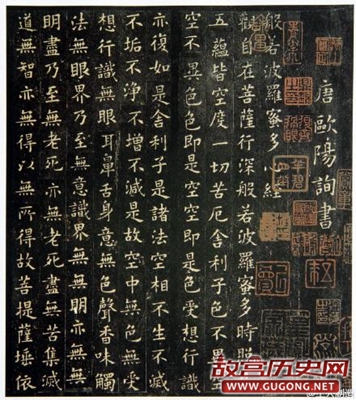 唐歐陽詢書
般若波羅蜜多心經
觀自在菩薩行深般若波羅蜜多時照見
五蘊皆空度一切苦厄舍利子色不異空
空不異色色即是空空即是色受想行識
亦復如是舍利子是諸法空相不生不滅
不垢不淨不增不減是故空中無色無受
想行識無眼耳鼻舌身意無色聲香味觸
法無眼界乃至無意識界無無明亦無無
明盡乃至無老死亦無老死盡無苦集滅
道無智亦無得以無所得故菩提薩埵依
故宫历史网
WWW.GUGONG.NET